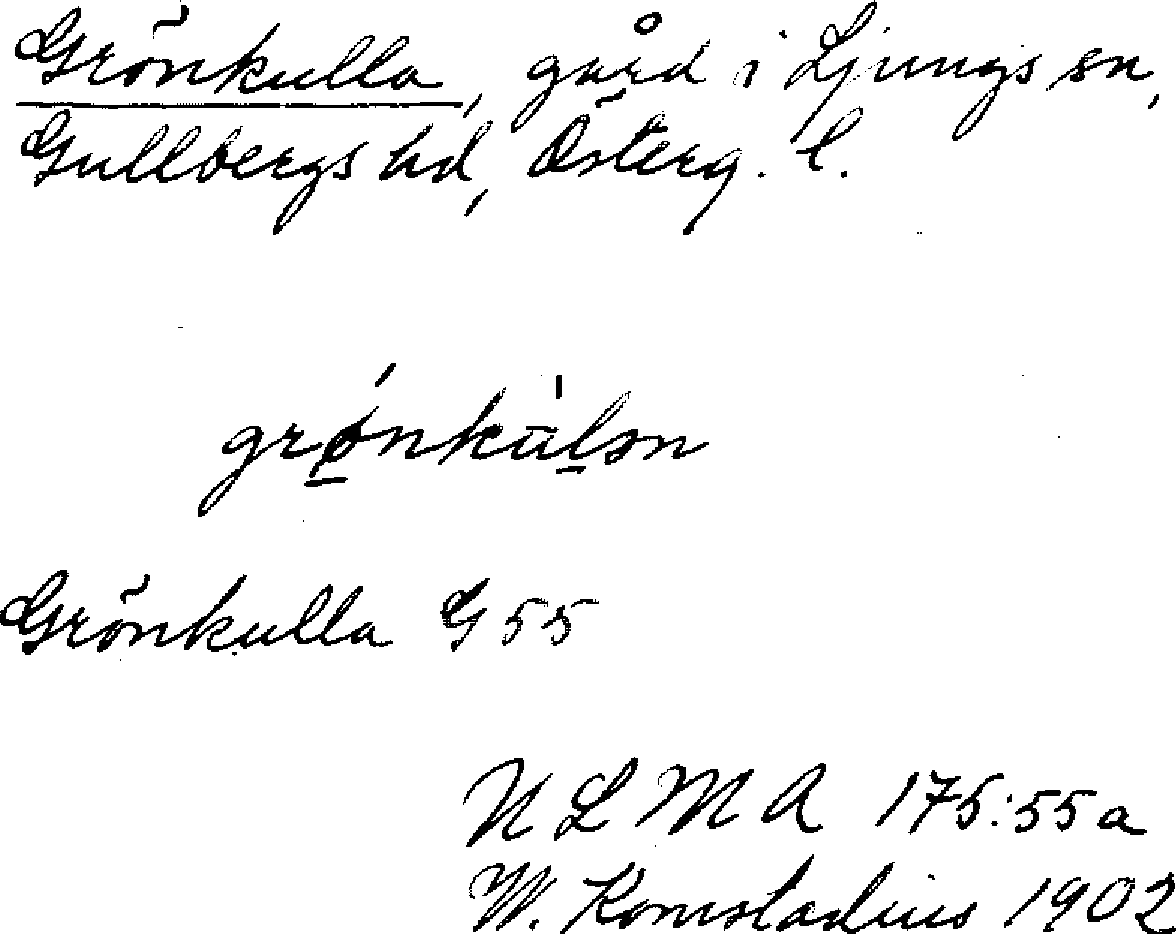 Grönkulla, gård i Ljungs sn,
Gullbergs hd, Österg. l.
grǿ̱nkù̱lən
Grönkulla G 55
U L M A 175:55a
W. Komstadius 1902